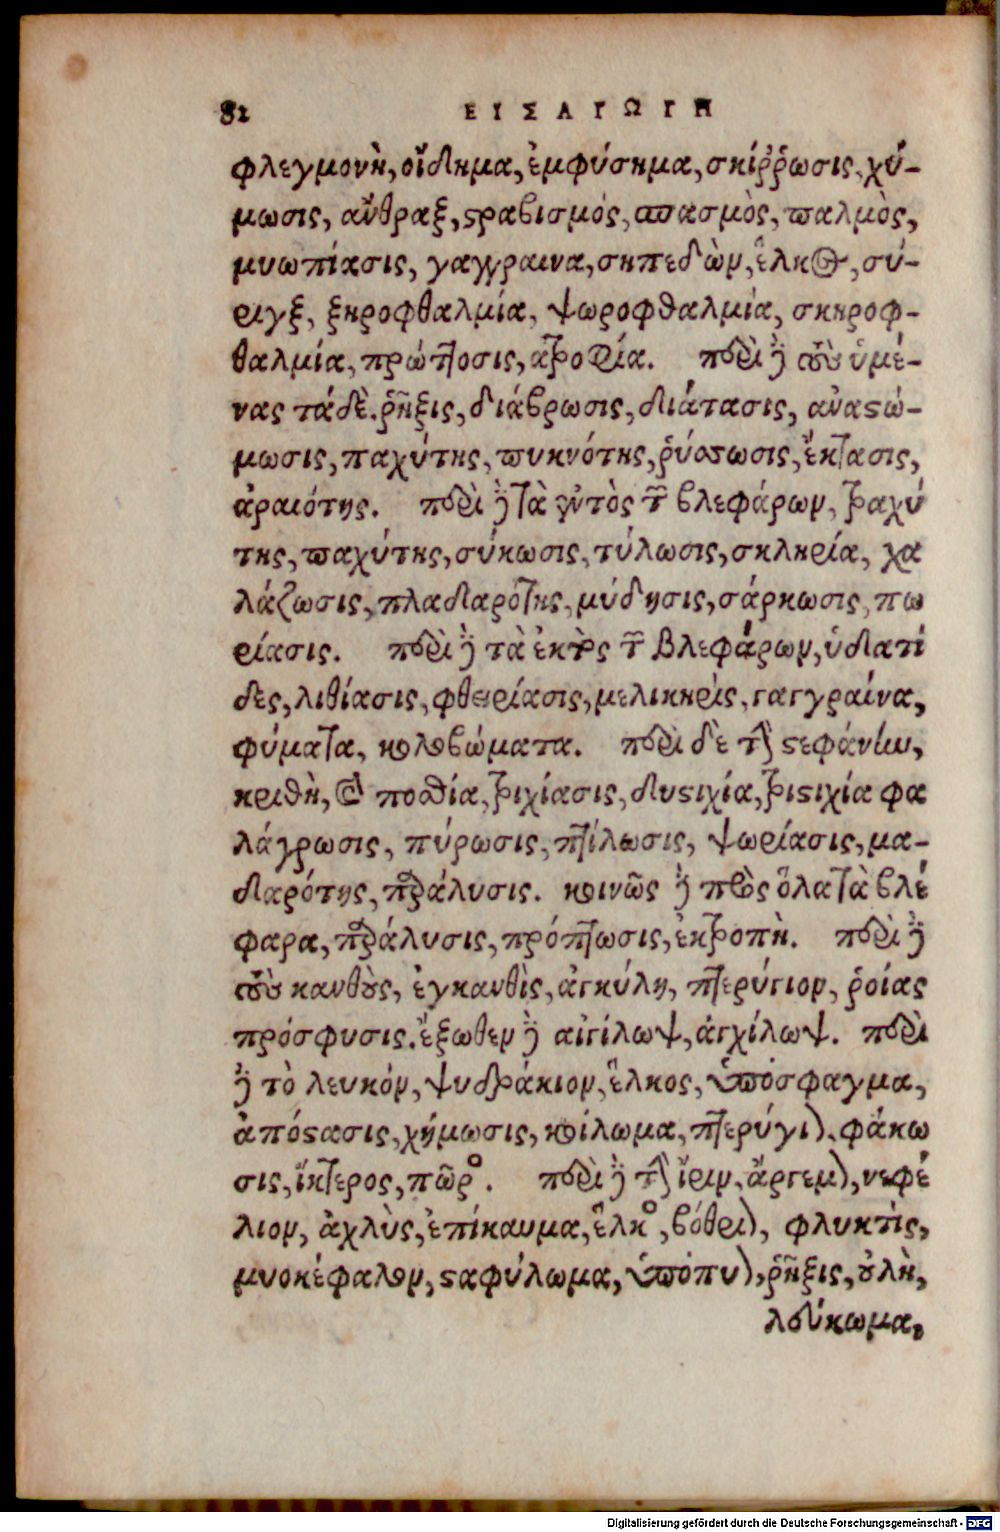 82 ΕΙΣΑΓΩΓΗ
φλεγμονὴ, οἴδημα, ἐμφύσημα, σκίῤῥωσις, χύ-
μωσις, ἄνθραξ, στραβισμός, σπασμὸς, παλμὸς,
μυωπίασις, γαγγραινα, σηπεδὼν, ἕλκος, σύ-
ριγξ, ξηροφθαλμία, ψωροφθαλμία, σκηροφ-
θαλμία, πρώπτοσις, ἀτροφία. περὶ δὲ τοὺς ὑμέ-
νας τάδε. ῥῆξις, διάβρωσις, διάτασις, ἀναστώ-
μωσις, παχύτης, πυκνότης, ῥύστωσις, ἔκτασις,
ἀραιότης. περὶ δὲ τὰ ἐντὸς τῶν βλεφάρων, τραχύ
της, παχύτης, σύκωσις, τύλωσις, σκληρία, χα
λάζωσις, πλαδαρότης, μύδησις, σάρκωσις, πω
ρίασις. περὶ δὲ τὰ ἐκτὸς τῶν βλεφάρων, ὑδατί
δες, λιθίασις, φθειρίασις, μελικηρὶς, γαγγραίνα,
φύματα, κολοβώματα. περὶ δὲ τὴν στεφάνην,
κριθὴ, καὶ ποσθία, τριχίασις, διστιχία, τριστιχία φα
λάγρωσις, πύρωσις, πτίλωσις, ψωρίασις, μα-
δαρότης, παράλυσις. κοινῶς δὲ πρὸς ὅλα τὰ βλέ
φαρα, παράλυσις, πρόπτωσις, ἐκτροπὴ. περὶ δὲ
τοὺς κανθοὺς, ἐγκανθὶς, ἀγκύλη, πτερύγιον, ῥοίας
πρόσφυσις. ἔξωθεν δὲ αἰγίλωψ, ἀγχίλωψ. περὶ
δὲ τὸ λευκόν, ψυδράκιον, ἕλκος, ὑπόσφαγμα,
ἀπόστασις, χήμωσις, κοίλωμα, πτερύγιον. φάκω
σις, ἴκτερος, πῶρος. περὶ δὲ τὴν ἴριν, ἄργεμον, νεφέ
λιον, ἀχλὺς, ἐπίκαυμα, ἕλκος, βόθριον, φλυκτὶς,
μυοκέφαλον, σταφύλωμα, ὑπόπυον, ῥῆξις, οὐλὴ,
λεύκωμα,
Digitalisierung gefördert durch die Deutsche Forschungsgemeinschaft - DFG